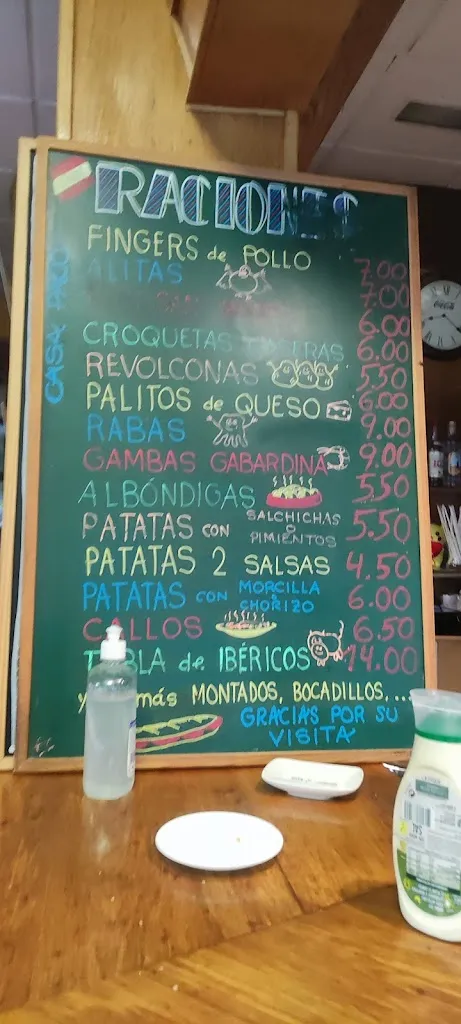 RACIONES
CASA PACO
FINGERS de POLLO 7.00
ALITAS 7.00
6.00
CROQUETAS 6.00
REVOLCONAS 5.50
PALITOS de QUESO 6.00
RABAS 9.00
GAMBAS GABARDINA 9.00
ALBÓNDIGAS 5.50
PATATAS CON SALCHICHAS O PIMIENTOS 5.50
PATATAS 2 SALSAS 4.50
PATATAS CON MORCILLA CHORIZO 6.00
CALLOS 6.50
TABLA de IBÉRICOS 14.00
más MONTADOS, BOCADILLOS,...
GRACIAS POR SU
VISITA
Coca-Cola